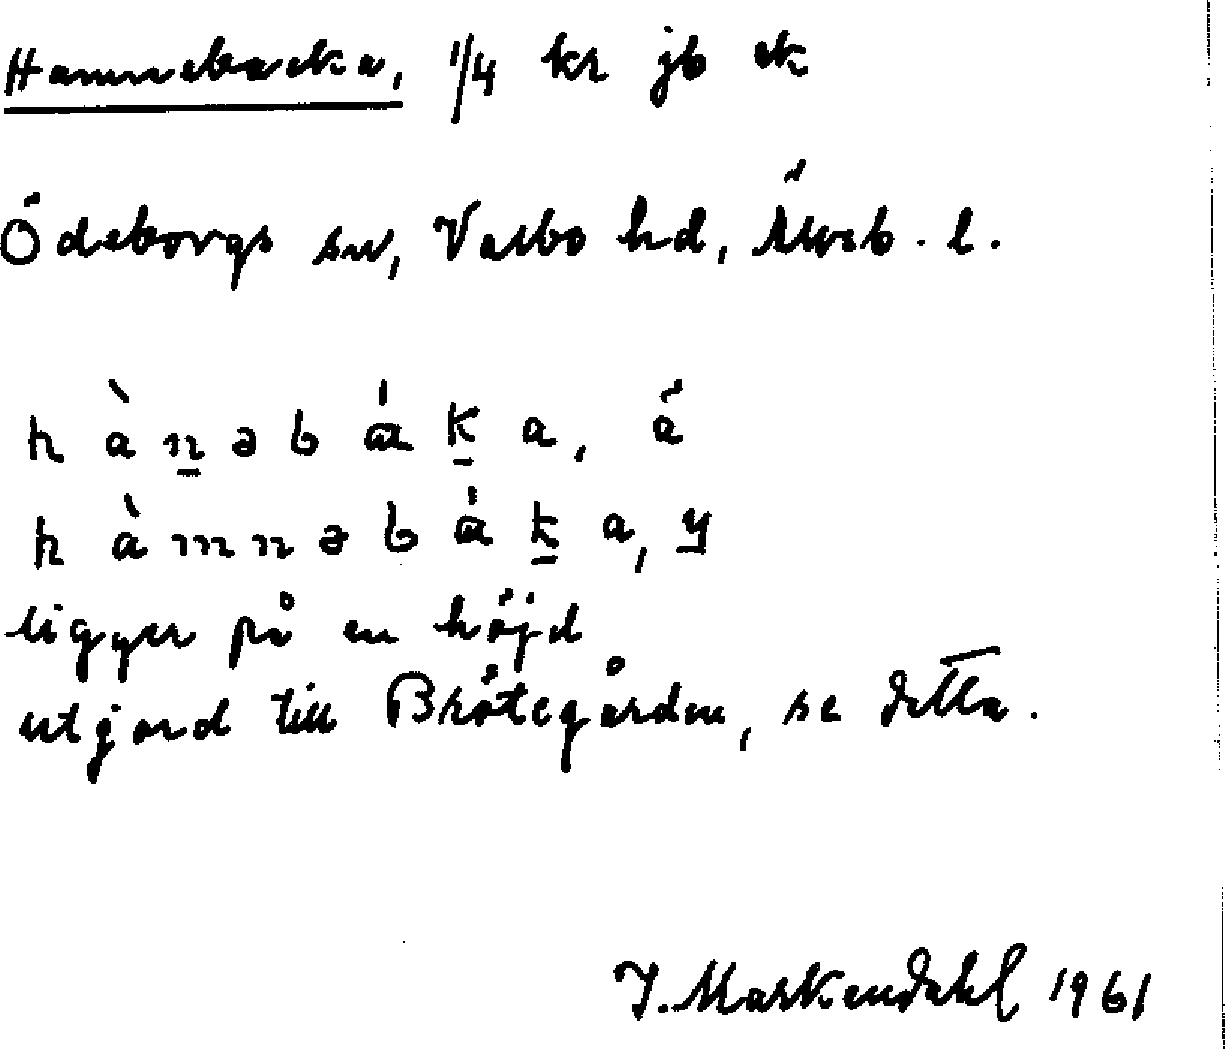 Hamnebacka, 1/4 kr jb ek
Ödeborgs sn, Valbo hd, Älvsb. l.
hàn̲əbák̲a, ä
hàmnəbák̲a, y
ligger på en höjd
utjord till Bråtegården, se detta.
J. Markendahl 1961